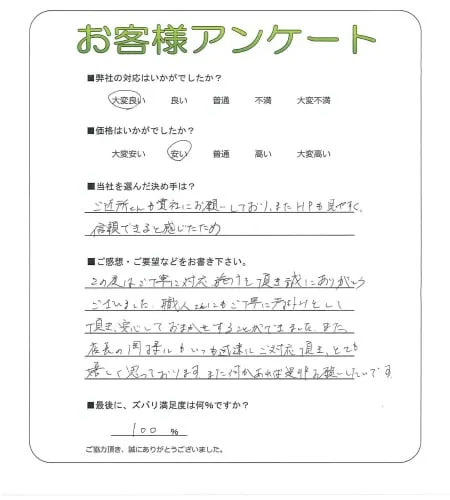 お客様アンケート
■弊社の対応はいかがでしたか？
大変良い 良い 普通 不満 大変不満
■価格はいかがでしたか？
大変安い 安い 普通 高い 大変高い
■当社を選んだ決め手は？
ご近所さんも貴社にお願いしており、またHPも見やすく、
信頼できると感じたため
■ご感想・ご要望などをお書き下さい。
この度はご丁寧に対応 頂き誠にありがとう
ございました。職人さんにもご丁寧に
頂き、安心しておまかせすることができました。また、
店長の岡様にもいつも迅速にご対応頂き、とても
嬉しく思っております。また何かあれば是非お願いしたいです。
■最後に、ズバリ満足度は何%ですか？
100 %
ご協力頂き、誠にありがとうございました。